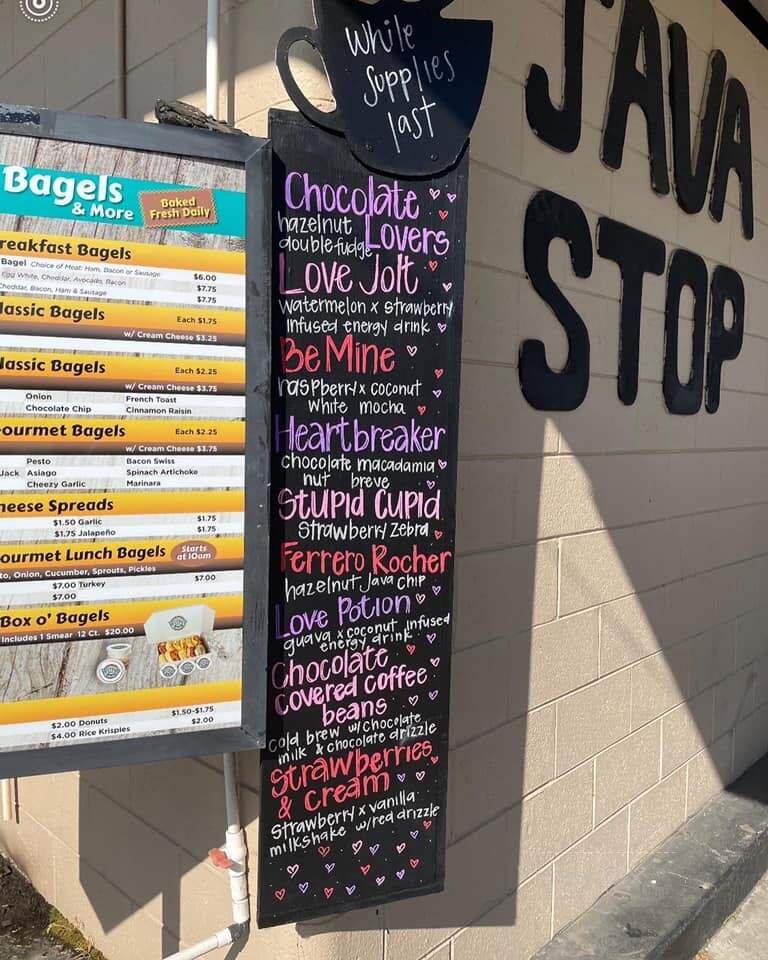 While
Supplies
last
JAVA
STOP
Bagels
& More
Baked
Fresh Daily
reakfast Bagels
Bagel Choice of Meat: Ham, Bacon or Sausage
$6.00
Egg White, Cheddar, Avocado, Bacon
$7.75
Cheddar, Bacon, Ham & Sausage
$7.75
lassic Bagels Each $1.75
w/ Cream Cheese $3.25
lassic Bagels Each $2.25
w/ Cream Cheese $3.75
Onion French Toast
Chocolate Chip Cinnamon Raisin
ourmet Bagels Each $2.25
w/ Cream Cheese $3.75
Pesto Bacon Swiss
Jack Asiago Spinach Artichoke
Cheezy Garlic Marinara
heese Spreads
$1.50 Garlic $1.75
$1.75 Jalapeño $1.75
ourmet Lunch Bagels Starts
at 10am
to, Onion, Cucumber, Sprouts, Pickles
$7.00 Turkey $7.00
$7.00
Box o' Bagels
Includes 1 Smear 12 Ct. $20.00
$2.00 Donuts $1.50-$1.75
$4.00 Rice Krisples $2.00
Chocolate
Lovers
hazelnut
double fudge
Love Jolt
watermelon x strawberry
infused energy drink
Be Mine
raspberry x coconut
white mocha
Heartbreaker
chocolate macadamia
nut breve
Stupid Cupid
Strawberry Zebra
Ferrero Rocher
hazelnut Java chip
Love Potion
guava x coconut infused
energy drink
Chocolate
covered coffee
beans
cold brew w/chocolate
milk & chocolate drizzle
Strawberries
& cream
Strawberry x vanilla
milkshake w/red drizzle